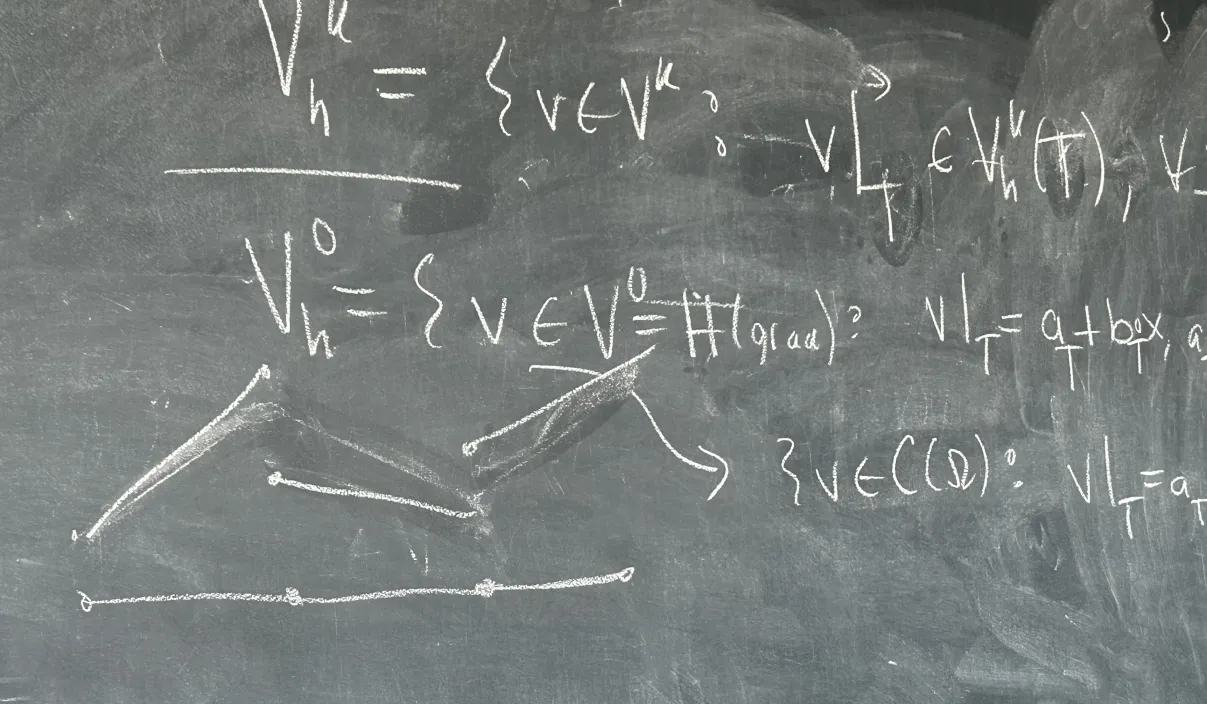 V_h^k = { v ∈ V^k : v|_T ∈ V_h^k(T), V
V_h^0 = { v ∈ V^0 = H(grad) : v|_T = a_T + b_T x, a
{ v ∈ C(Ω) : v|_T = a_T